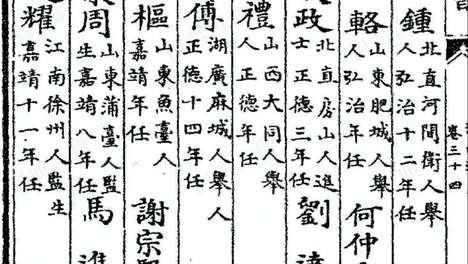 卷三十四
鍾
北直河間衛人舉
人弘治十二年任
輅
山東肥城人舉
人弘治年任
何仲
政
北直房山人進
士正德三年任
劉
禮
山西大同人舉
人正德年任
傅
湖廣麻城人舉人
正德十四年任
樞
山東魚臺人
嘉靖年任
謝宗
周
山東蒲臺人監
生嘉靖八年任
馬
耀
江南徐州人監生
嘉靖十一年任